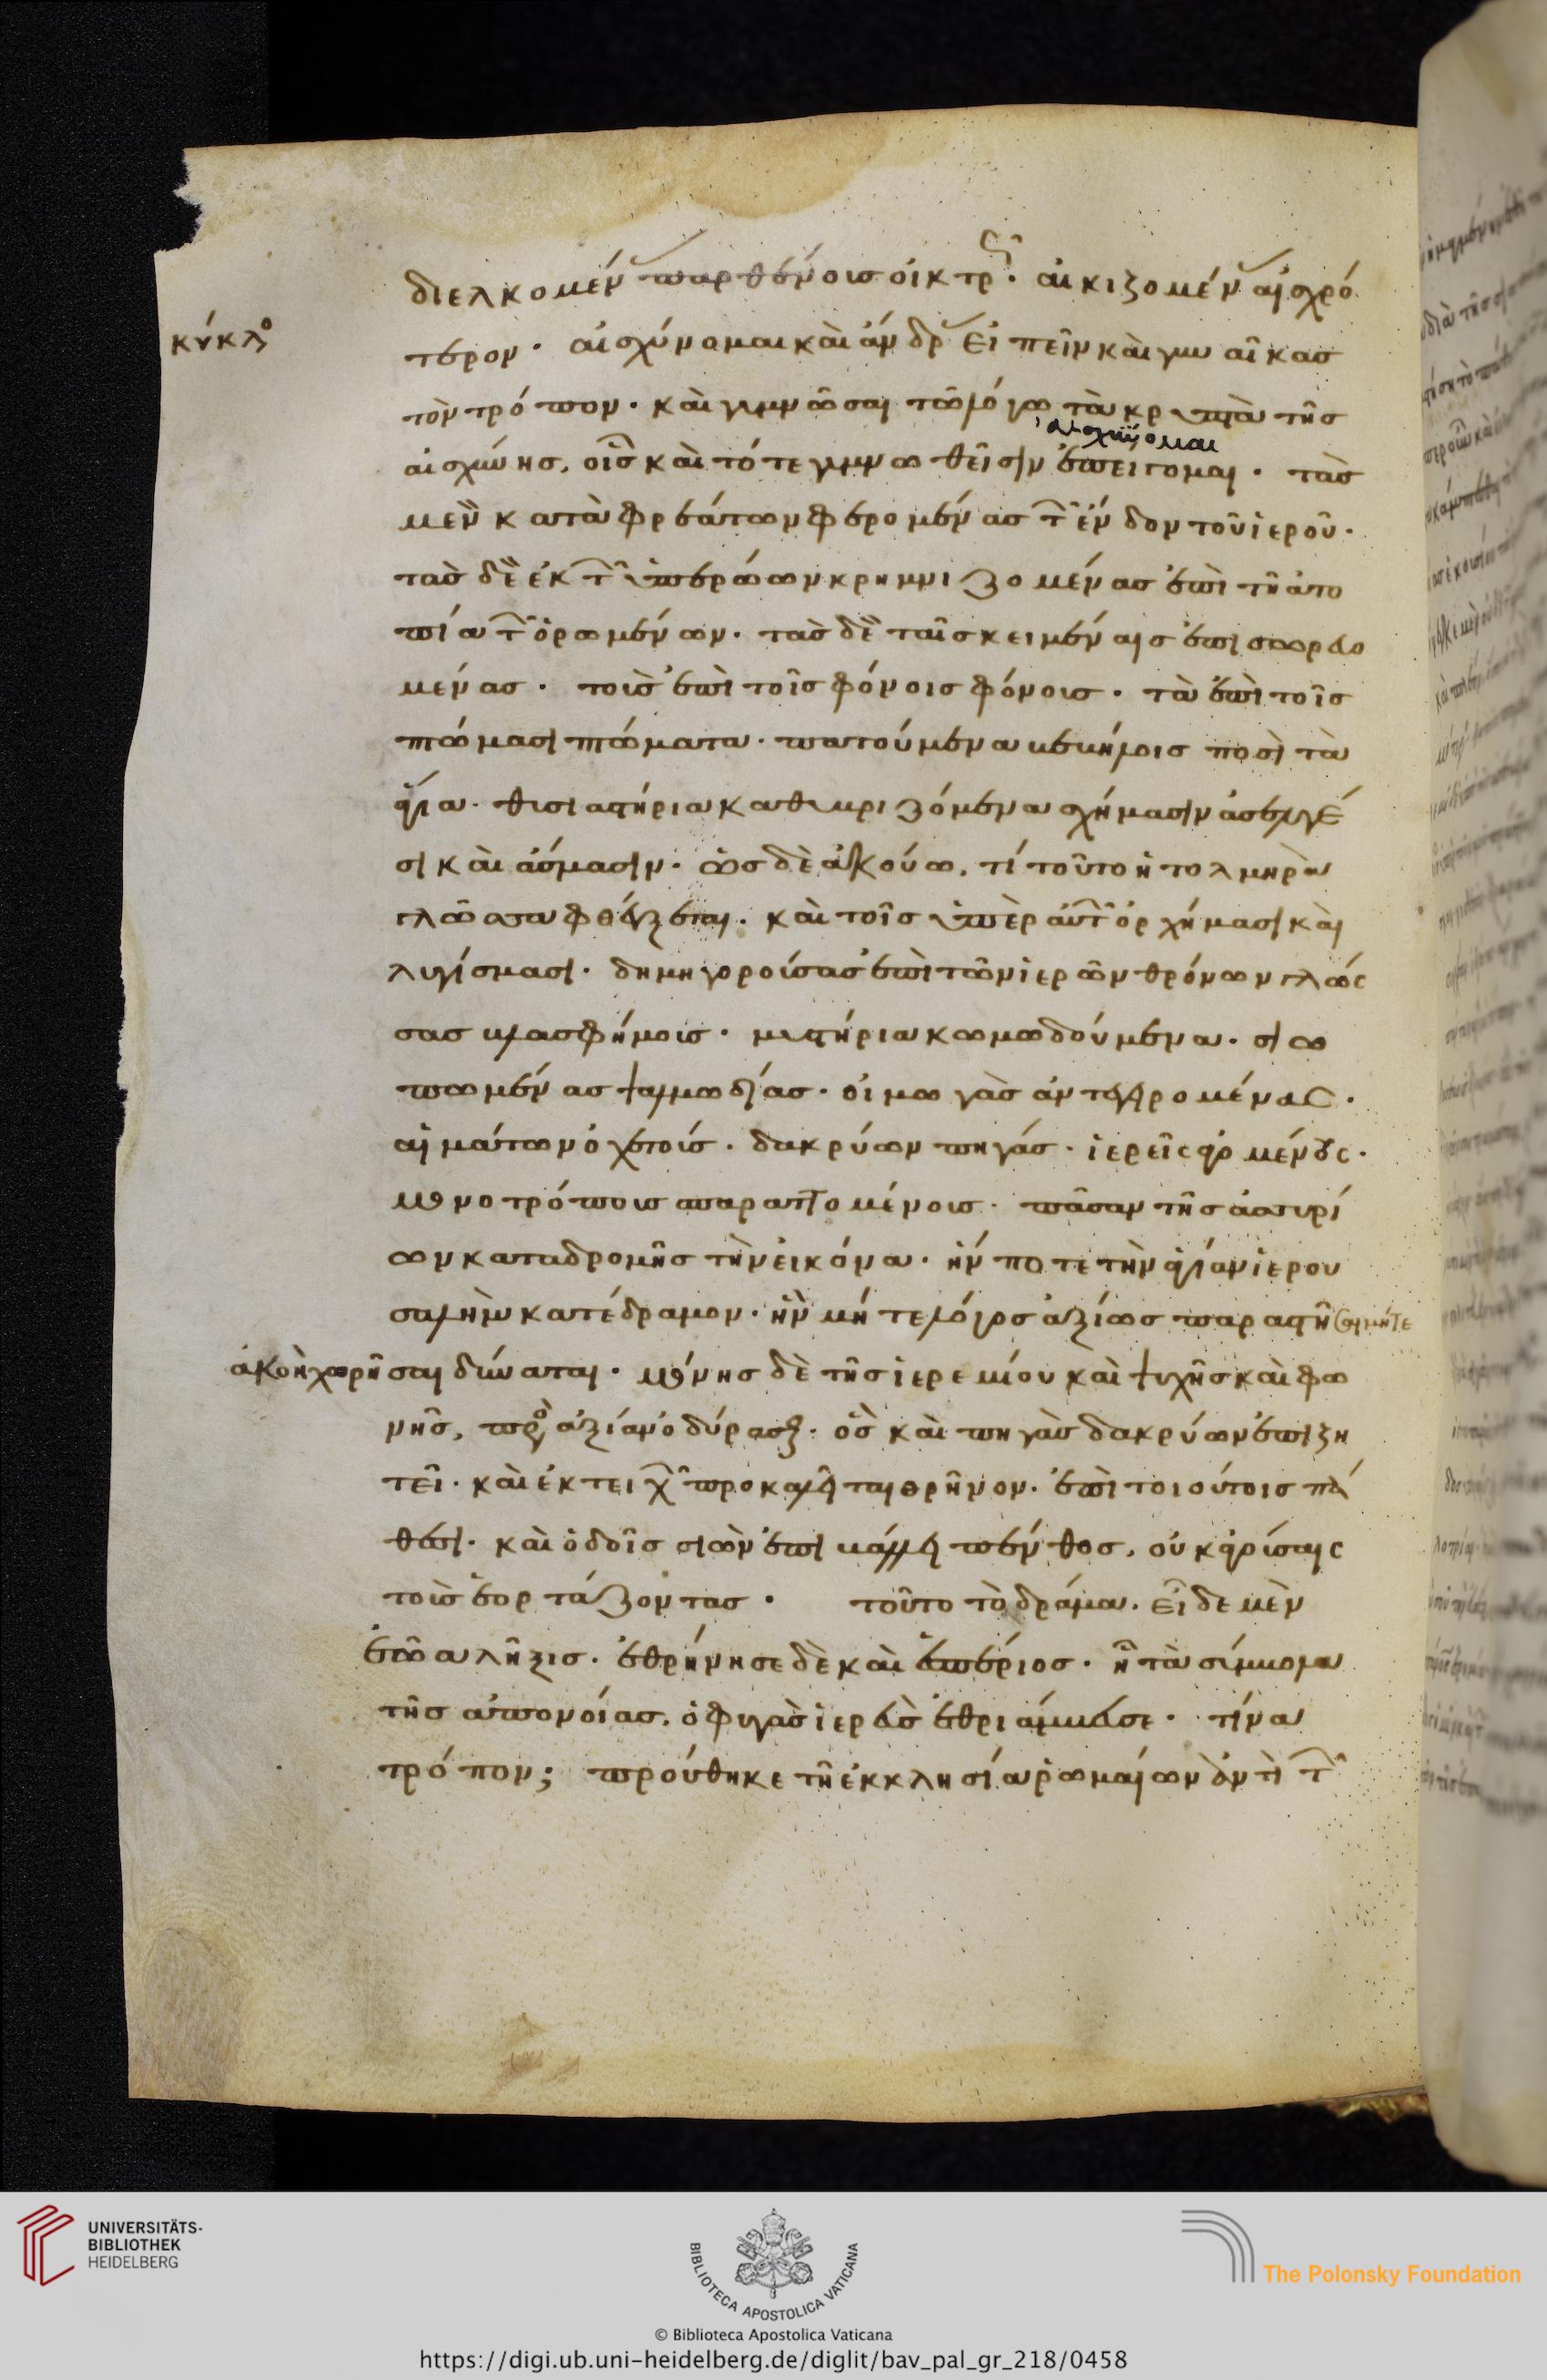 διελκομένας παρθένους οἰκτρῶς· αἰκιζομένας αἰσχρό
κύκλο
τερον· αἰσχύνομαι καὶ ἄνδρας εἰπεῖν καὶ γυναῖκας
τὸν τρόπον· καὶ γυμνῶσαι τῶ λόγω τὰ κρυπτὰ τῆς
αἰσχύνομαι
αἰσχύνης, οἷς καὶ τότε γυμνωθεῖσιν ἐπείγομαι· τὰς
μὲν κατὰ φρεάτων φερομένας τῶν ἔνδον τοῦ ἱεροῦ·
τὰς δὲ ἐκ τῶν ὑπερώων κρημνιζομένας ἐπὶ τῆ ἀτο
πία τῶν ὁρωμένων· τὰς δὲ ταῖς κειμέναις ἐπισωρευο
μένας· τοὺς ἐπὶ τοῖς φόνοις φόνους· τὰ ἐπὶ τοῖς
πτώμασι πτώματα· πατούμενα βεβήλοις ποσὶ τὰ
ἅγια· θυσιαστήρια καθυβριζόμενα σχήμασιν ἀσελγέ
σι καὶ ἄσμασιν· ὡς δὲ ἀκούω, τί τοῦτο ἡ τολμηρὰ
γλῶσσα φθέγξεται· καὶ τοῖς ὑπὲρ αὐτῶν ὀρχήμασι καὶ
λυγίσμασι· δημηγορούσας ἐπὶ τῶν ἱερῶν θρόνων γλώσ
σας βλασφήμους· μυστήρια κωμωδούμενα· σιω
πωμένας ψαλμωδίας· οἰμωγὰς ἀντεγειρομένας·
αἱμάτων ὀχετούς· δακρύων πηγάς· ἱερεῖς φερομένους·
μονοτρόπους σπαραττομένους· πᾶσαν τῆς ἀσσυρί
ων καταδρομῆς τὴν εἰκόνα· ἥν ποτε τὴν ἁγίαν ἱερου
σαλὴμ κατέδραμον· ἣν μήτε λόγος ἀξίως παραστῆσαι μήτε
ἀκοὴ χωρῆσαι δύναται· μόνης δὲ τῆς ἱερεμίου καὶ ψυχῆς καὶ φω
νῆς, πρὸς ἀξίαν ὀδύρασθαι· ὃς καὶ πηγὰς δακρύων ἐπιζη
τεῖ· καὶ ἐκ τειχῶν προκαλεῖται θρῆνον· ἐπὶ τοιούτοις πά
θεσι· καὶ ὁδοῖς σιὼν ἐπιβάλλει πένθος, οὐχ εὑρίσκεις
τοὺς ἑορτάζοντας· τοῦτο τὸ δρᾶμα· εἶδε μὲν
ἑῴα λῆξις· ἐθρήνησε δὲ καὶ ἑσπέριος· ἧ τὰ σύμβολα
τῆς ἀπονοίας, ὁ φυγὰς ἱερεὺς ἐθριάμβευσε· τίνα
τρόπον; προὔθηκε τῆ ἐκκλησία ῥωμαίων ἀντὶ τῶν
UNIVERSITÄTS-
BIBLIOTHEK
HEIDELBERG
BIBLIOTECA APOSTOLICA VATICANA
The Polonsky Foundation
© Biblioteca Apostolica Vaticana
https://digi.ub.uni-heidelberg.de/diglit/bav_pal_gr_218/0458